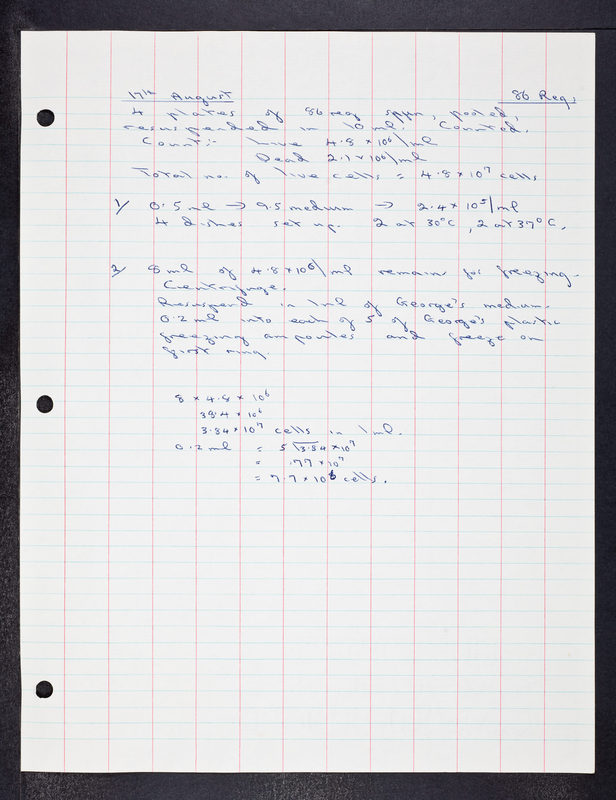 17th August 86 Req.
4 plates of 86 req sppn, pooled,
resuspended in 10 ml. Counted.
Count:- Live 4.8 × 10⁶/ml
Dead 2.1 × 10⁶/ml
Total no. of live cells = 4.8 × 10⁷ cells
1/ 0.5 ml → 9.5 medium → 2.4 × 10⁵/ml
4 dishes set up. 2 at 30°C, 2 at 37°C.
2/ 8 ml of 4.8 × 10⁶/ml remain for freezing.
Centrifuge.
Resuspend in 1 ml of George's medium.
0.2 ml into each of 5 of George's plastic
freezing ampoules and freeze on
first ring.
8 × 4.8 × 10⁶
38.4 × 10⁶
3.84 × 10⁷ cells in 1 ml.
0.2 ml = 5 √3.84 × 10⁷
= .77 × 10⁷
= 7.7 × 10⁶ cells.